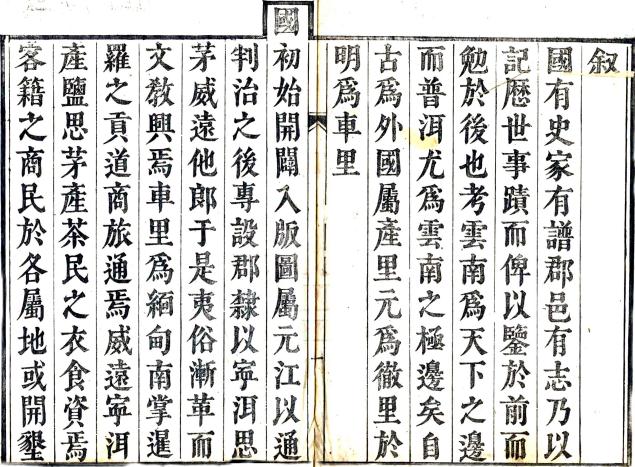 叙
國有史家有譜郡邑有志乃以
記歷世事蹟而俾以鑒於前而
勉於後也考雲南為天下之邊
而普洱尤為雲南之極邊矣自
古為外國屬產里元為徹里於
明為車里
國初始開闢入版圖屬元江以通
判治之後專設郡隸以寧洱思
茅威遠他郎于是夷俗漸革而
文教興焉車里為緬甸南掌暹
羅之貢道商旅通焉威遠寧洱
產鹽思茅產茶民之衣食資焉
客籍之商民於各屬地或開墾